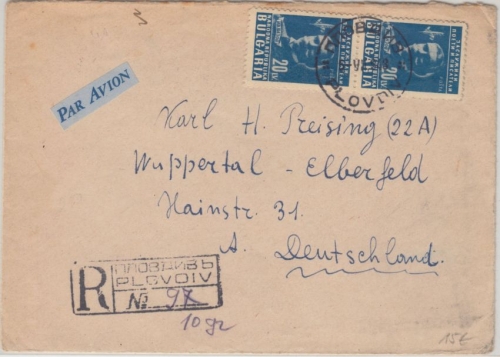 PAR AVION
BULGARIA
20
BULGARIA
20
PLOVDIV
Karl H. Preising (22A)
Wuppertal - Elberfeld
Hainstr. 31.
A. Deutschland.
R
ПЛОВДИВЪ
PLOVDIV
№ 97
10 gr
15€